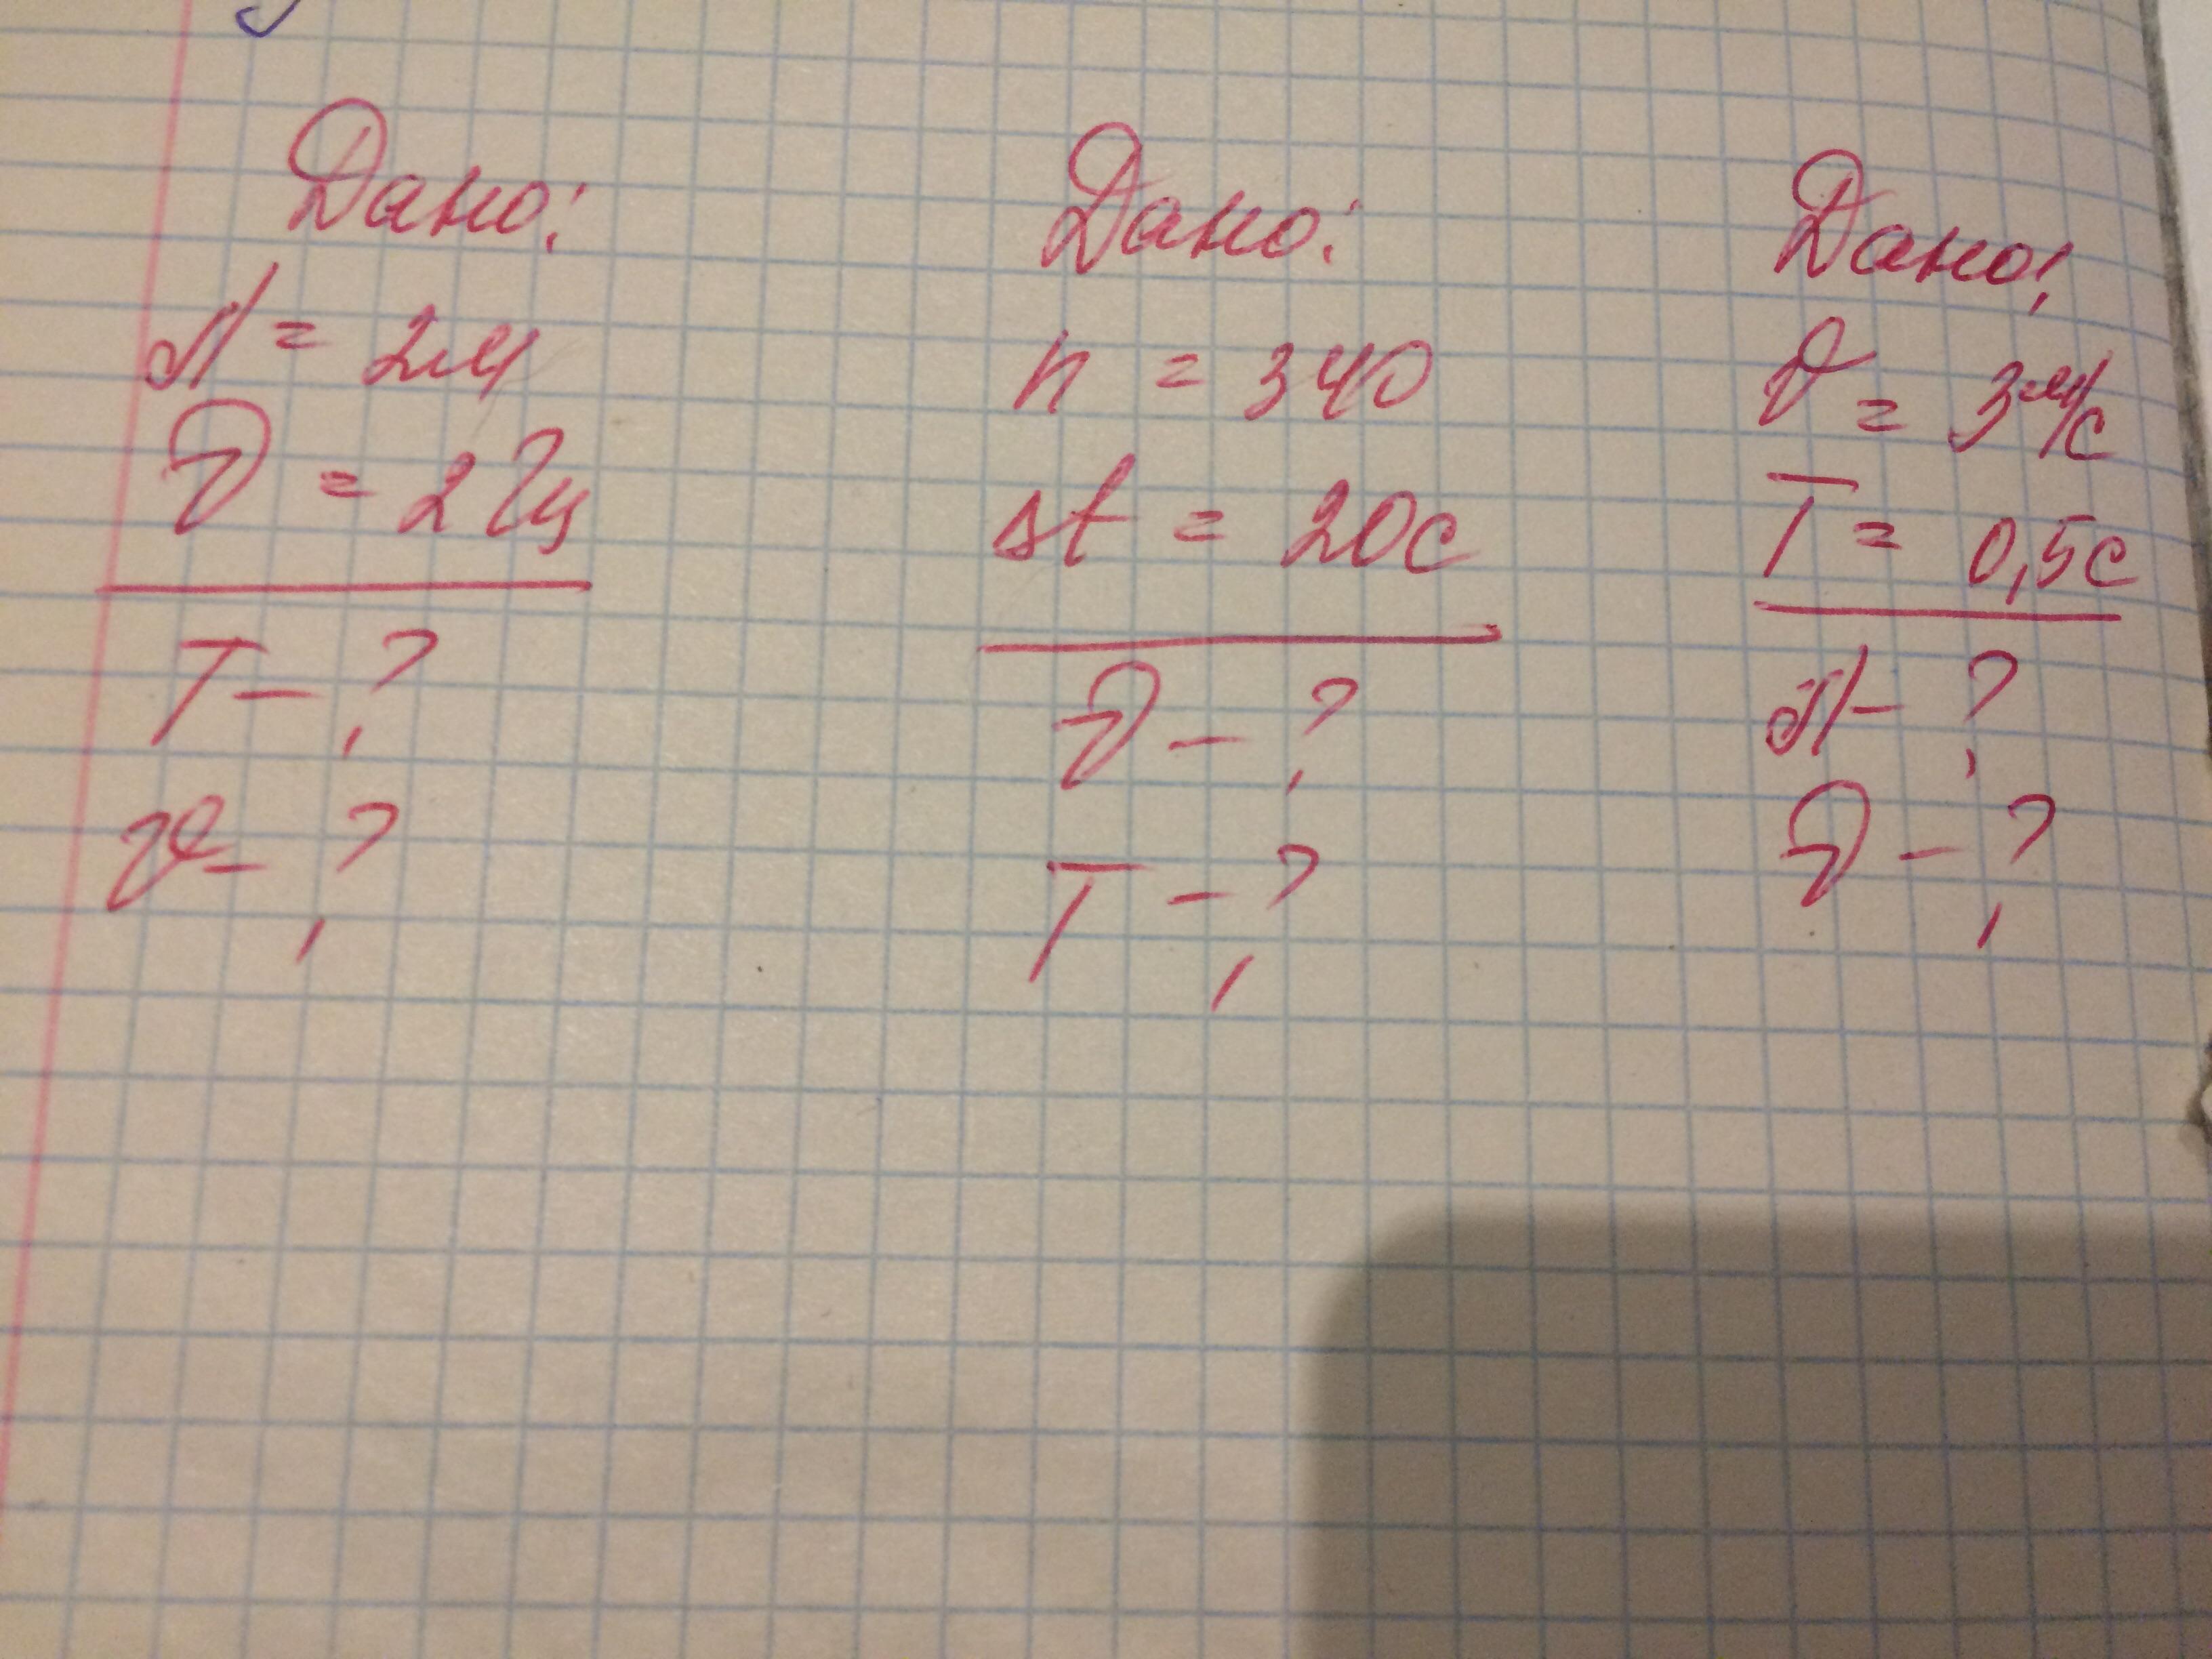 Дано:
λ = 2м
ν = 2Гц
T - ?
υ - ?
Дано:
n = 340
Δt = 20с
ν - ?
T - ?
Дано:
υ = 3м/с
T = 0,5с
λ - ?
ν - ?